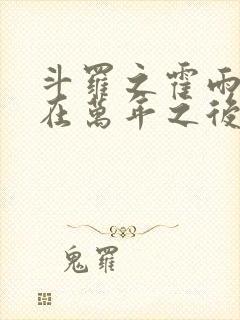 斗羅之霍雨
在萬年之後
鬼羅